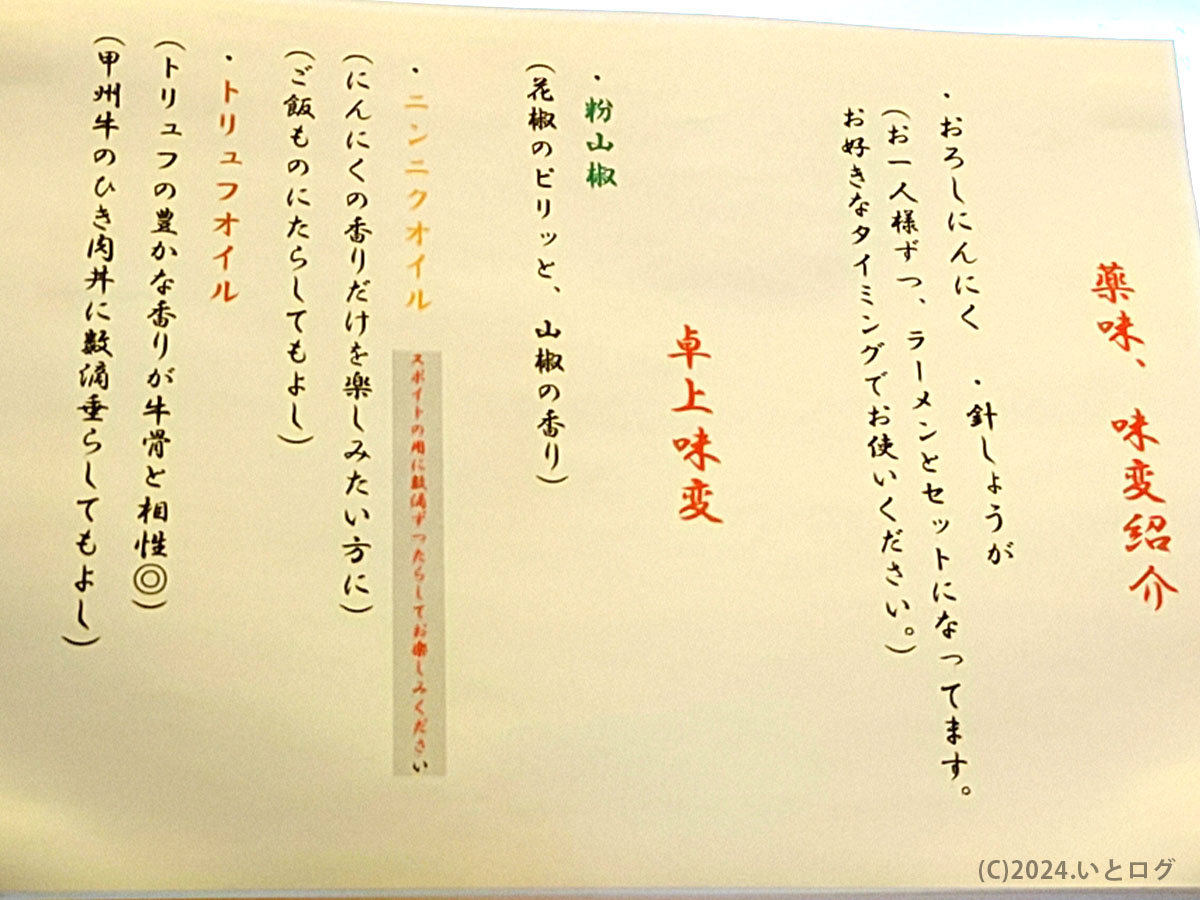 薬味、味変紹介
・おろしにんにく ・針しょうが
(お一人様ずつ、ラーメンとセットになってます。
お好きなタイミングでお使いください。)
卓上味変
・粉山椒
(花椒のピリッと、山椒の香り)
・ニンニクオイル
スポイトの用に数滴ずつたらしてお楽しみください
(にんにくの香りだけを楽しみたい方に)
(ご飯ものにたらしてもよし)
・トリュフオイル
(トリュフの豊かな香りが牛骨と相性◎)
(甲州牛のひき肉丼に数滴垂らしてもよし)
(C)2024.いとログ